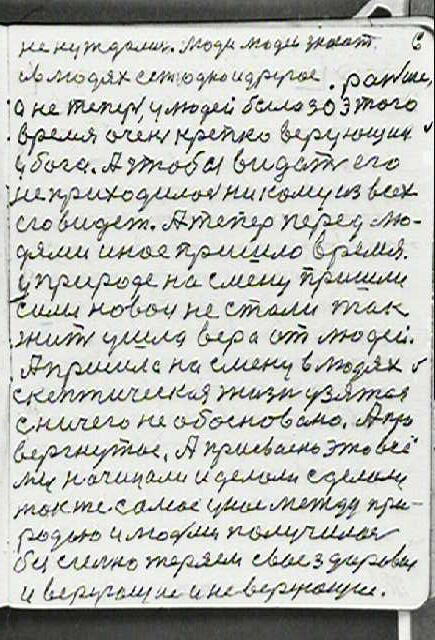 не нуждались. Люди людей знают 6
в людях есть одно и другое. раньше,
а не теперь, у людей было до этого
время очень крепко верующим
у бога. А чтобы видать его
не приходилось никому из всех
его видеть. А тепер перед лю-
дями иное пришло время.
у природе на смену пришли
сили новои не стали так
жить ушла вера от людей.
А пришла на смену в людях
скептическая жизн узятая
с ничего не обосновано. А про
вергнутое. А присвоено это всё
мы начинали и делали сделали
так же самое у нас между при-
родою и людми получилося
бессильно теряем свое здоровья
и верующие и неверующие.